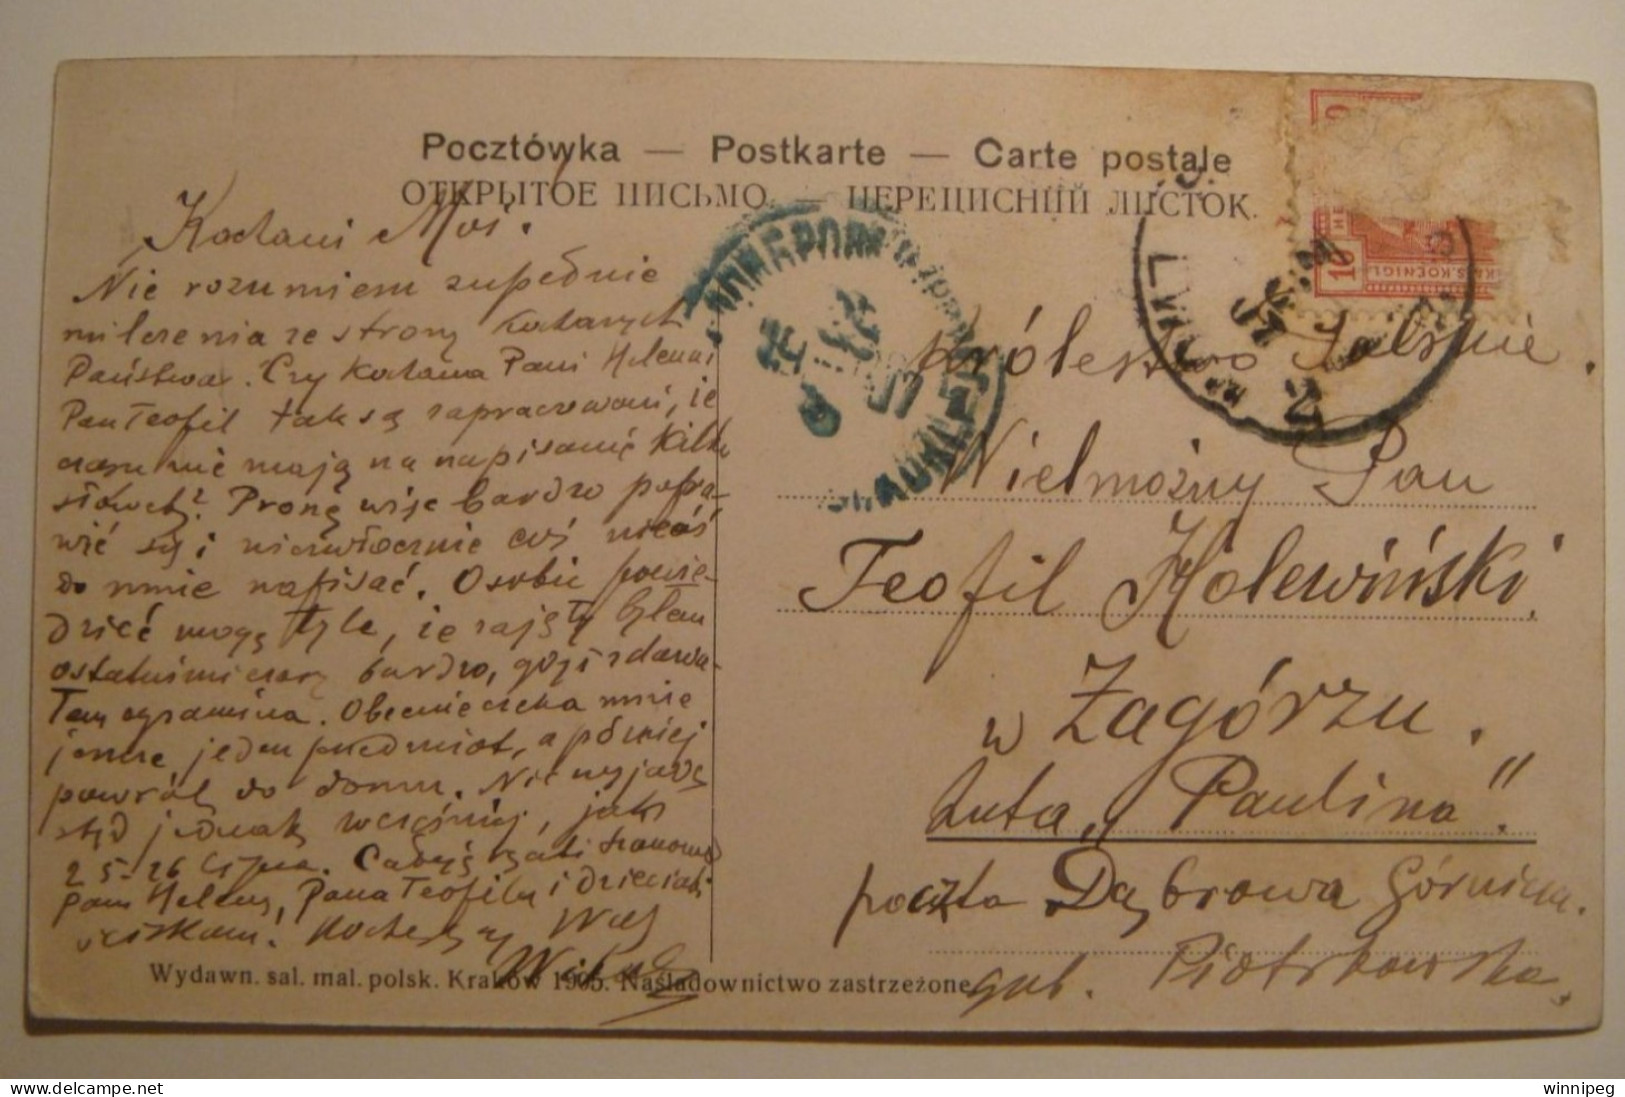 Pocztówka — Postkarte — Carte postale
ОТКРЫТОЕ ПИСЬМО. — ПЕРЕПИСНИЙ ЛИСТОК.
Kochani Moi.
Nie rozumiem zupełnie
milczenia ze strony Kochanych
Państwa. Czy Kochana Pani Helena i
Pan Teofil tak są zapracowani, że
czasu nie mają na napisanie Kilku
słówek? Proszę więc bardzo popra-
wić się i niezwłocznie coś niecoś
do mnie napisać. O sobie powie-
dzieć mogę tyle, że zajęty byłem
ostatniemi czasy bardzo, gdyż zdawa-
łem egzamina. Obecnie czeka mnie
jeszcze jeden przedmiot, a później
powrót do domu. Nie wyjadę
stąd jednak wcześniej, jak
25-26 lipca. Całuję rączki Szanownej
Pani Heleny, Pana Teofila i dzieciaki
uściskam. Kochający Was
10
Królestwo Polskie.
Wielmożny Pan
Teofil Holewiński.
w Zagórzu.
huta „Paulina".
poczta Dąbrowa Górnicza.
gub. Piotrkowska,
Wydawn. sal. mal. polsk. Kraków 1905. Naśladownictwo zastrzeżone.
winnipeg